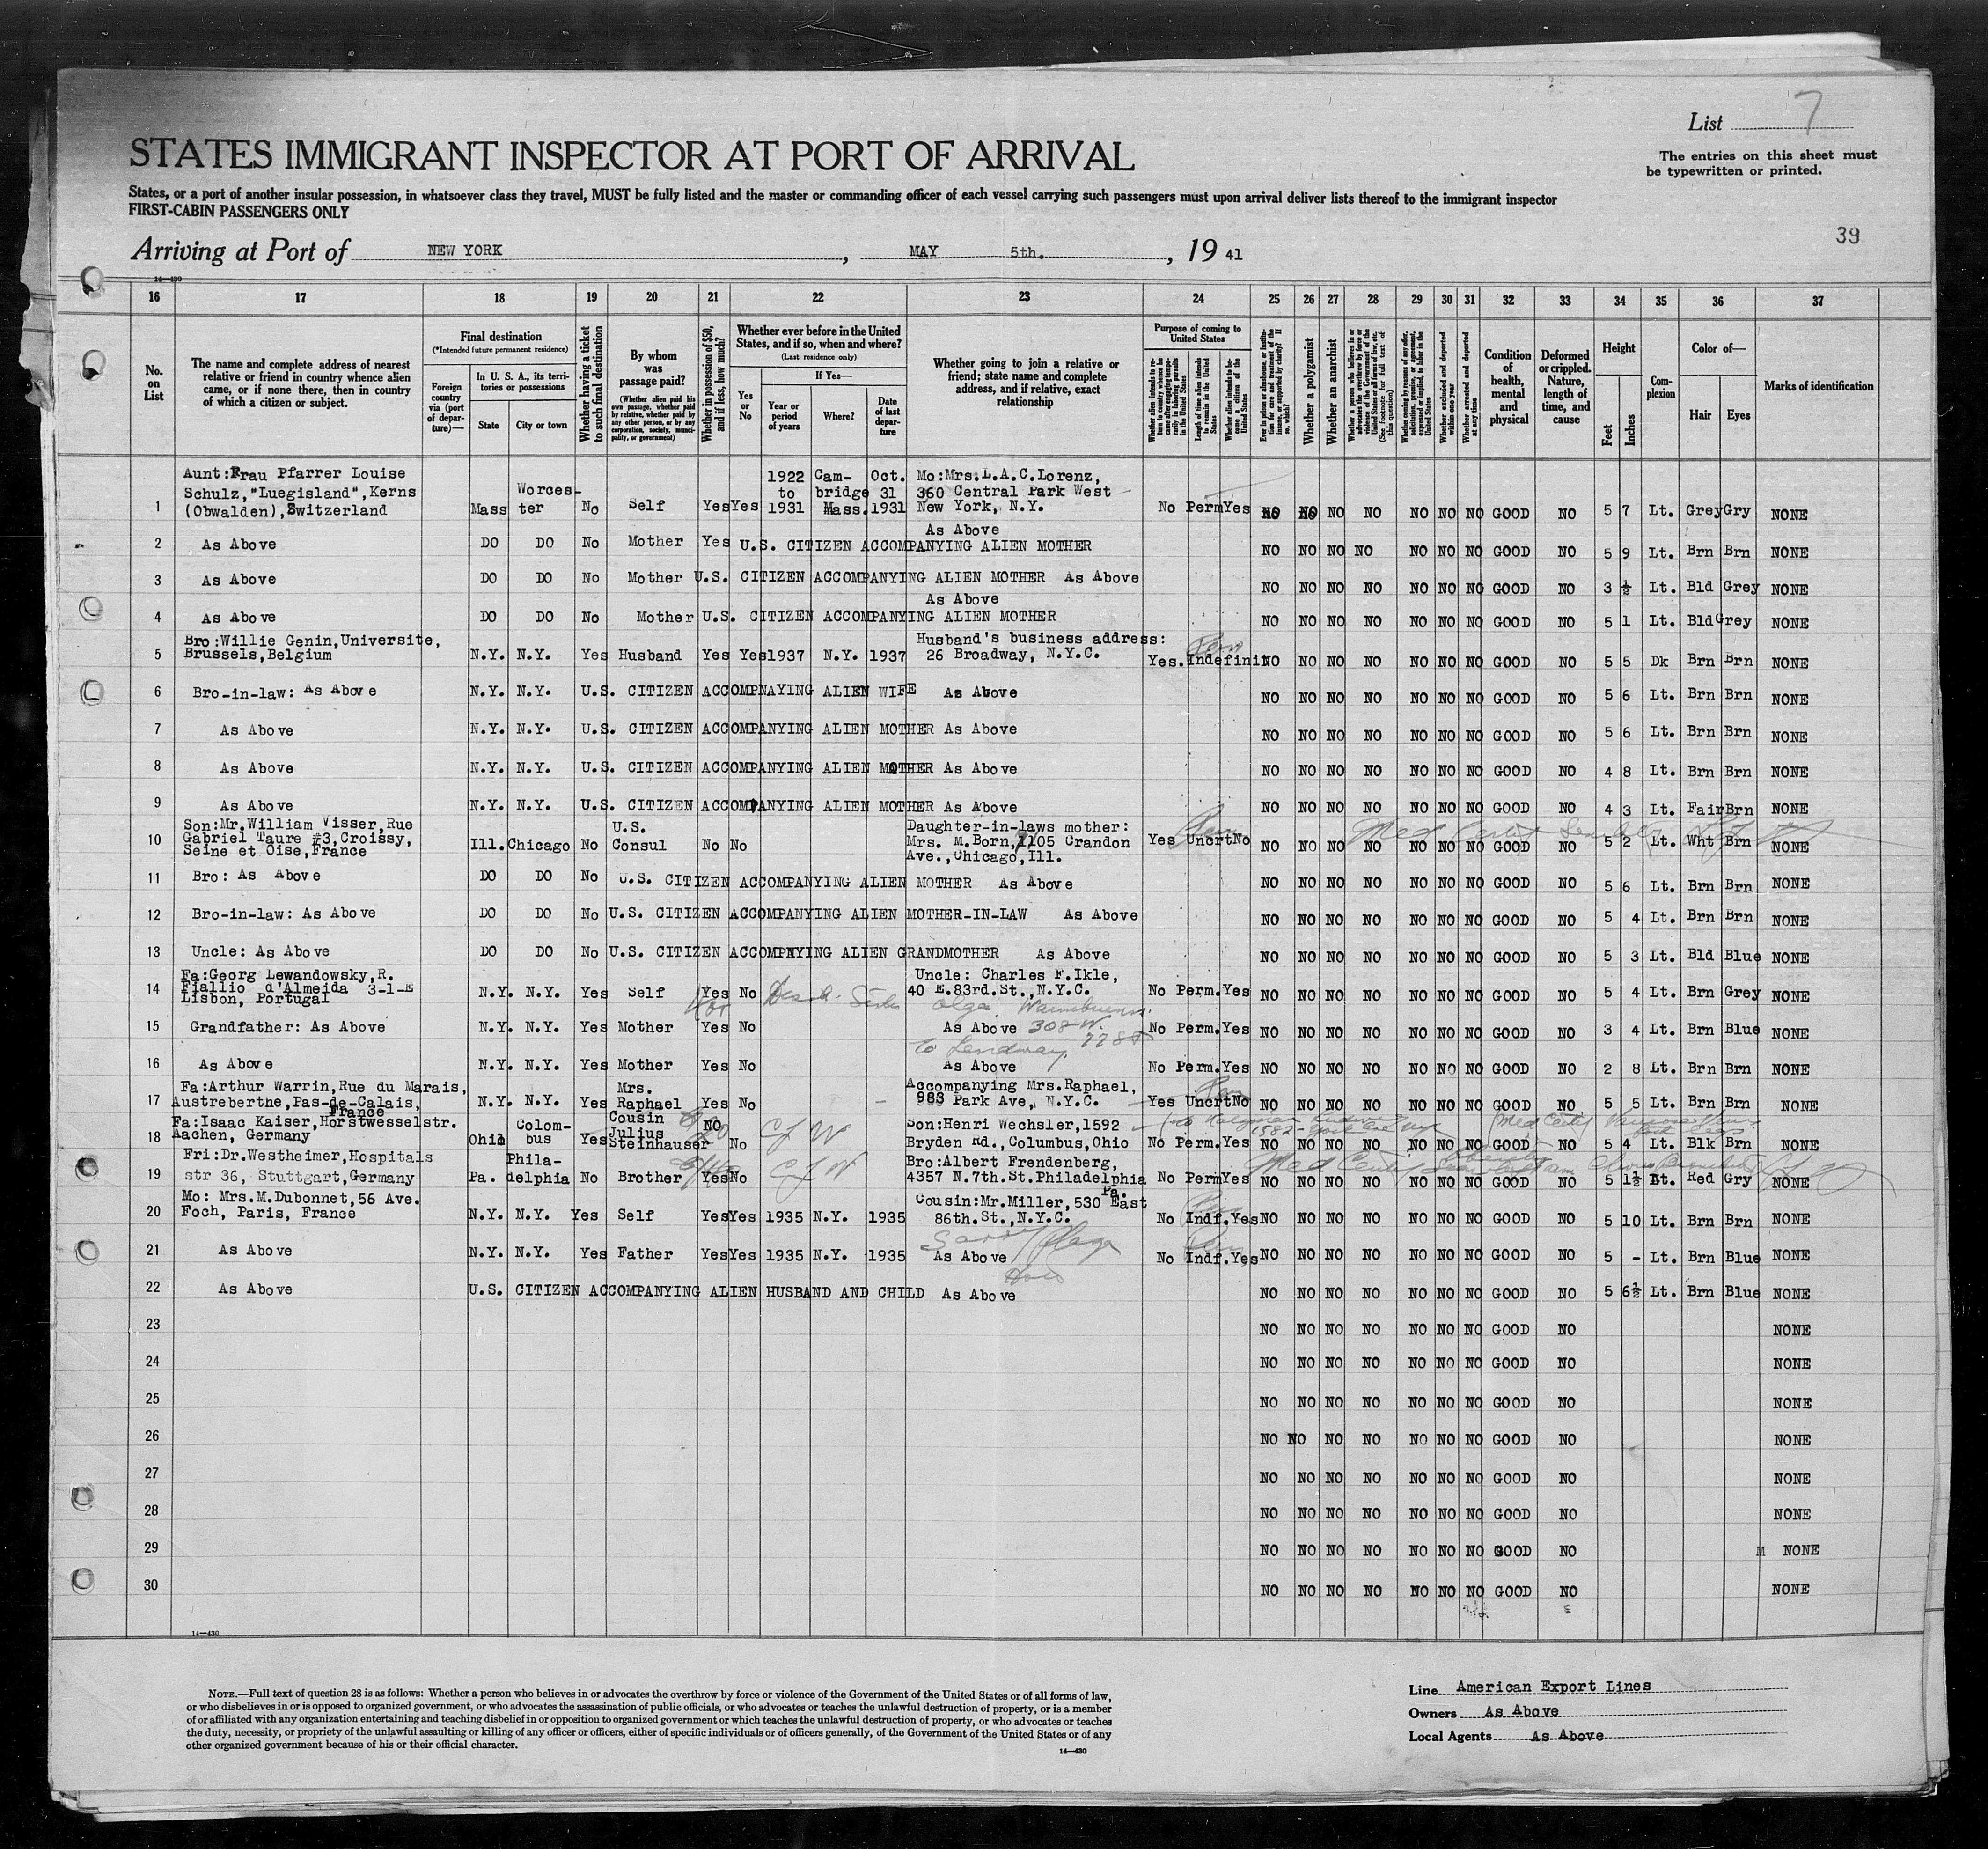 List 7
STATES IMMIGRANT INSPECTOR AT PORT OF ARRIVAL
The entries on this sheet must
be typewritten or printed.
States, or a port of another insular possession, in whatsoever class they travel, MUST be fully listed and the master or commanding officer of each vessel carrying such passengers must upon arrival deliver lists thereof to the immigrant inspector
FIRST-CABIN PASSENGERS ONLY
39
Arriving at Port of NEW YORK, MAY 5th., 19 41
14—430
16 17 18 19 20 21 22 23 24 25 26 27 28 29 30 31 32 33 34 35 36 37
No. on List
The name and complete address of nearest relative or friend in country whence alien came, or if none there, then in country of which a citizen or subject.
Final destination
(*Intended future permanent residence)
Foreign country via (port of departure)—
In U. S. A., its territories or possessions
State
City or town
Whether having a ticket to such final destination
By whom was passage paid?
(Whether alien paid his own passage, whether paid by relative, whether paid by any other person, or by any corporation, society, municipality, or government)
Whether in possession of $50, and if less, how much?
Whether ever before in the United States, and if so, when and where?
(Last residence only)
Yes or No
If Yes—
Year or period of years
Where?
Date of last departure
Whether going to join a relative or friend; state name and complete address, and if relative, exact relationship
Purpose of coming to United States
Whether alien intends to return to country whence he came after engaging temporarily in laboring pursuits in the United States
Length of time alien intends to remain in the United States
Whether alien intends to become a citizen of the United States
Ever in prison or almshouse, or institution for care and treatment of the insane, or supported by charity? If so, which?
Whether a polygamist
Whether an anarchist
Whether a person who believes in or advocates the overthrow by force or violence of the Government of the United States or all forms of law, etc. (See footnote for full text of this question)
Whether coming by reasons of any offer, solicitation, promise, or agreement, expressed or implied, to labor in the United States
Whether excluded and deported within one year
Whether arrested and deported at any time
Condition of health, mental and physical
Deformed or crippled. Nature, length of time, and cause
Height
Feet
Inches
Complexion
Color of—
Hair
Eyes
Marks of identification
1 Aunt:Frau Pfarrer Louise Schulz,"Luegisland",Kerns (Obwalden),Switzerland Mass Worces-ter No Self Yes Yes 1922 to 1931 Cam-bridge Mass. Oct. 31 1931 Mo:Mrs.L.A.C.Lorenz, 360 Central Park West New York, N.Y. No Perm Yes NO NO NO NO NO NO NO GOOD NO 5 7 Lt. Grey Gry NONE
2 As Above DO DO No Mother Yes U.S. CITIZEN ACCOMPANYING ALIEN MOTHER As Above NO NO NO NO NO NO NO GOOD NO 5 9 Lt. Brn Brn NONE
3 As Above DO DO No Mother U.S. CITIZEN ACCOMPANYING ALIEN MOTHER As Above NO NO NO NO NO NO NO GOOD NO 3 ½ Lt. Bld Grey NONE
4 As Above DO DO No Mother U.S. CITIZEN ACCOMPANYING ALIEN MOTHER As Above NO NO NO NO NO NO NO GOOD NO 5 1 Lt. Bld Grey NONE
5 Bro:Willie Genin,Universite, Brussels,Belgium N.Y. N.Y. Yes Husband Yes Yes 1937 N.Y. 1937 Husband's business address: 26 Broadway, N.Y.C. Yes. Indefinit Perm NO NO NO NO NO NO NO GOOD NO 5 5 Dk Brn Brn NONE
6 Bro-in-law: As Above N.Y. N.Y. U.S. CITIZEN ACCOMPNAYING ALIEN WIFE As Above NO NO NO NO NO NO NO GOOD NO 5 6 Lt. Brn Brn NONE
7 As Above N.Y. N.Y. U.S. CITIZEN ACCOMPANYING ALIEN MOTHER As Above NO NO NO NO NO NO NO GOOD NO 5 6 Lt. Brn Brn NONE
8 As Above N.Y. N.Y. U.S. CITIZEN ACCOMPANYING ALIEN MOTHER As Above NO NO NO NO NO NO NO GOOD NO 4 8 Lt. Brn Brn NONE
9 As Above N.Y. N.Y. U.S. CITIZEN ACCOMPANYING ALIEN MOTHER As Above NO NO NO NO NO NO NO GOOD NO 4 3 Lt. Fair Brn NONE
10 Son:Mr.William Visser,Rue Gabriel Taure #3,Croissy, Seine et Oise,France Ill. Chicago No U.S. Consul No No Daughter-in-laws mother: Mrs. M.Born,7105 Crandon Ave.,Chicago,Ill. Yes Uncrt No Perm Med Certif NO NO NO NO NO NO NO GOOD NO 5 2 Lt. Wht Brn NONE
11 Bro: As Above DO DO No U.S. CITIZEN ACCOMPANYING ALIEN MOTHER As Above NO NO NO NO NO NO NO GOOD NO 5 6 Lt. Brn Brn NONE
12 Bro-in-law: As Above DO DO No U.S. CITIZEN ACCOMPANYING ALIEN MOTHER-IN-LAW As Above NO NO NO NO NO NO NO GOOD NO 5 4 Lt. Brn Brn NONE
13 Uncle: As Above DO DO No U.S. CITIZEN ACCOMPNYING ALIEN GRANDMOTHER As Above NO NO NO NO NO NO NO GOOD NO 5 3 Lt. Bld Blue NONE
14 Fa:Georg Lewandowsky,R. Fiallio d'Almeida 3-1-E Lisbon, Portugal N.Y. N.Y. Yes Self Yes No Uncle: Charles F.Ikle, 40 E.83rd.St.,N.Y.C. Olga No Perm. Yes NO NO NO NO NO NO NO GOOD NO 5 4 Lt. Brn Grey NONE
15 Grandfather: As Above N.Y. N.Y. Yes Mother Yes No As Above 308 W. 77 St No Perm. Yes NO NO NO NO NO NO NO GOOD NO 3 4 Lt. Brn Blue NONE
16 As Above N.Y. N.Y. Yes Mother Yes No As Above No Perm. Yes NO NO NO NO NO NO NO GOOD NO 2 8 Lt. Brn Brn NONE
17 Fa:Arthur Warrin,Rue du Marais, Austreberthe,Pas-de-Calais, France N.Y. N.Y. Yes Mrs. Raphael Yes No Accompanying Mrs.Raphael, 983 Park Ave, N.Y.C. Yes Uncrt No Perm NO NO NO NO NO NO NO GOOD NO 5 5 Lt. Brn Brn NONE
18 Fa:Isaac Kaiser,Horstwesselstr. Aachen, Germany Ohio Colom-bus Yes Cousin Julius Steinhauser NO No Son:Henri Wechsler,1592 Bryden Rd.,Columbus,Ohio No Perm. Yes Med Certif NO NO NO NO NO NO NO GOOD NO 5 4 Lt. Blk Brn NONE
19 Fri:Dr.Westheimer,Hospitals str 36, Stuttgart,Germany Pa. Phila-delphia No Brother Yes No Bro:Albert Frendenberg, 4357 N.7th.St.Philadelphia Pa. No Perm Yes Med Certif NO NO NO NO NO NO NO GOOD NO 5 1½ Lt. Red Gry NONE
20 Mo: Mrs.M.Dubonnet,56 Ave. Foch, Paris, France N.Y. N.Y. Yes Self Yes Yes 1935 N.Y. 1935 Cousin:Mr.Miller,530 East 86th.St.,N.Y.C. No Indf. Yes Perm NO NO NO NO NO NO NO GOOD NO 5 10 Lt. Brn Brn NONE
21 As Above N.Y. N.Y. Yes Father Yes Yes 1935 N.Y. 1935 As Above No Indf. Yes Perm NO NO NO NO NO NO NO GOOD NO 5 - Lt. Brn Blue NONE
22 As Above U.S. CITIZEN ACCOMPANYING ALIEN HUSBAND AND CHILD As Above NO NO NO NO NO NO NO GOOD NO 5 6½ Lt. Brn Blue NONE
23 NO NO NO NO NO NO NO GOOD NO NONE
24 NO NO NO NO NO NO NO GOOD NO NONE
25 NO NO NO NO NO NO NO GOOD NO NONE
26 NO NO NO NO NO NO NO GOOD NO NONE
27 NO NO NO NO NO NO NO GOOD NO NONE
28 NO NO NO NO NO NO NO GOOD NO NONE
29 NO NO NO NO NO NO NO GOOD NO NONE
30 NO NO NO NO NO NO NO GOOD NO NONE
14—430
NOTE.—Full text of question 28 is as follows: Whether a person who believes in or advocates the overthrow by force or violence of the Government of the United States or of all forms of law,
or who disbelieves in or is opposed to organized government, or who advocates the assassination of public officials, or who advocates or teaches the unlawful destruction of property, or is a member
of or affiliated with any organization entertaining and teaching disbelief in or opposition to organized government or which teaches the unlawful destruction of property, or who advocates or teaches
the duty, necessity, or propriety of the unlawful assaulting or killing of any officer or officers, either of specific individuals or of officers generally, of the Government of the United States or of any
other organized government because of his or their official character.
14—430
Line American Export Lines
Owners As Above
Local Agents As Above